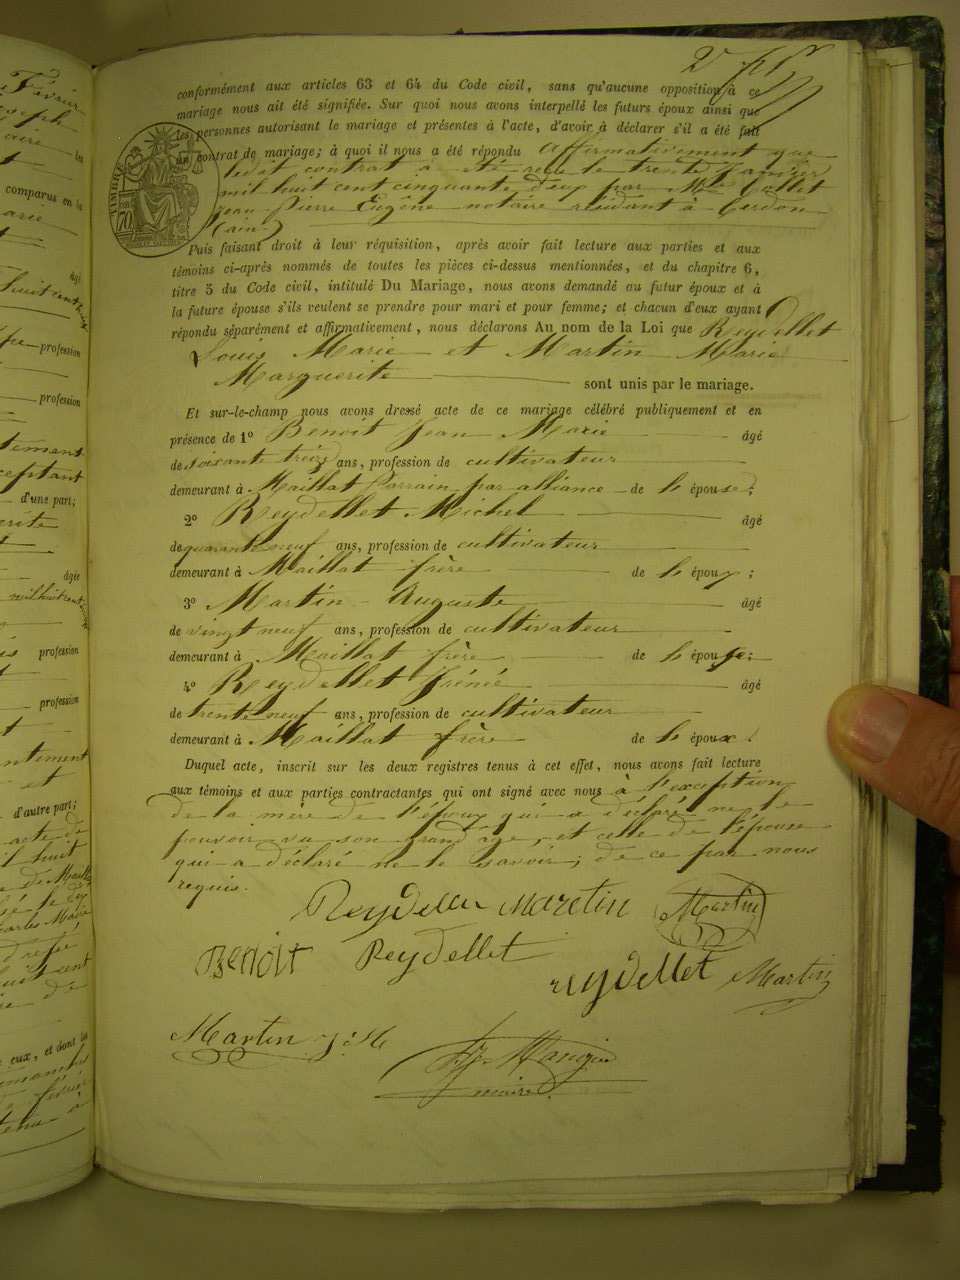 conformément aux articles 63 et 64 du Code civil, sans qu'aucune opposition à ce
mariage nous ait été signifiée. Sur quoi nous avons interpellé les futurs époux ainsi que
les personnes autorisant le mariage et présentes à l'acte, d'avoir à déclarer s'il a été fait
un contrat de mariage; à quoi il nous a été répondu affirmativement que
ledit contrat à été reçu le trente Janvier
mil huit cent cinquante deux par Me Collet
Jean Pierre Eugène notaire résidant à Cerdon
(ain)
TIMBRE
70
Puis faisant droit à leur réquisition, après avoir fait lecture aux parties et aux
témoins ci-après nommés de toutes les pièces ci-dessus mentionnées, et du chapitre 6,
titre 5 du Code civil, intitulé Du Mariage, nous avons demandé au futur époux et à
la future épouse s'ils veulent se prendre pour mari et pour femme; et chacun d'eux ayant
répondu séparément et affirmativement, nous déclarons Au nom de la Loi que Reydellet
Louis Marie et Martin Marie
Marguerite sont unis par le mariage.
Et sur-le-champ nous avons dressé acte de ce mariage célébré publiquement et en
présence de 1° Benoit Jean Marie âgé
de soixante treize ans, profession de cultivateur
demeurant à Maillat Parrain par alliance de l'épouse;
2° Reydellet Michel âgé
de quarante neuf ans, profession de cultivateur
demeurant à Maillat frère de l'époux;
3° Martin Auguste âgé
de vingt neuf ans, profession de cultivateur
demeurant à Maillat frère de l'épouse;
4° Reydellet Irénée âgé
de trente neuf ans, profession de cultivateur
demeurant à Maillat frère de l'époux.
Duquel acte, inscrit sur les deux registres tenus à cet effet, nous avons fait lecture
aux témoins et aux parties contractantes qui ont signé avec nous à l'exception
de la mère de l'époux qui a déclaré ne le
pouvoir vu son grand âge, et celle de l'épouse
qui a déclaré ne le savoir; de ce par nous
requis.
Reydellet Martin Martin
Benoit Reydellet
reydellet Martin
Martin J: M
maire